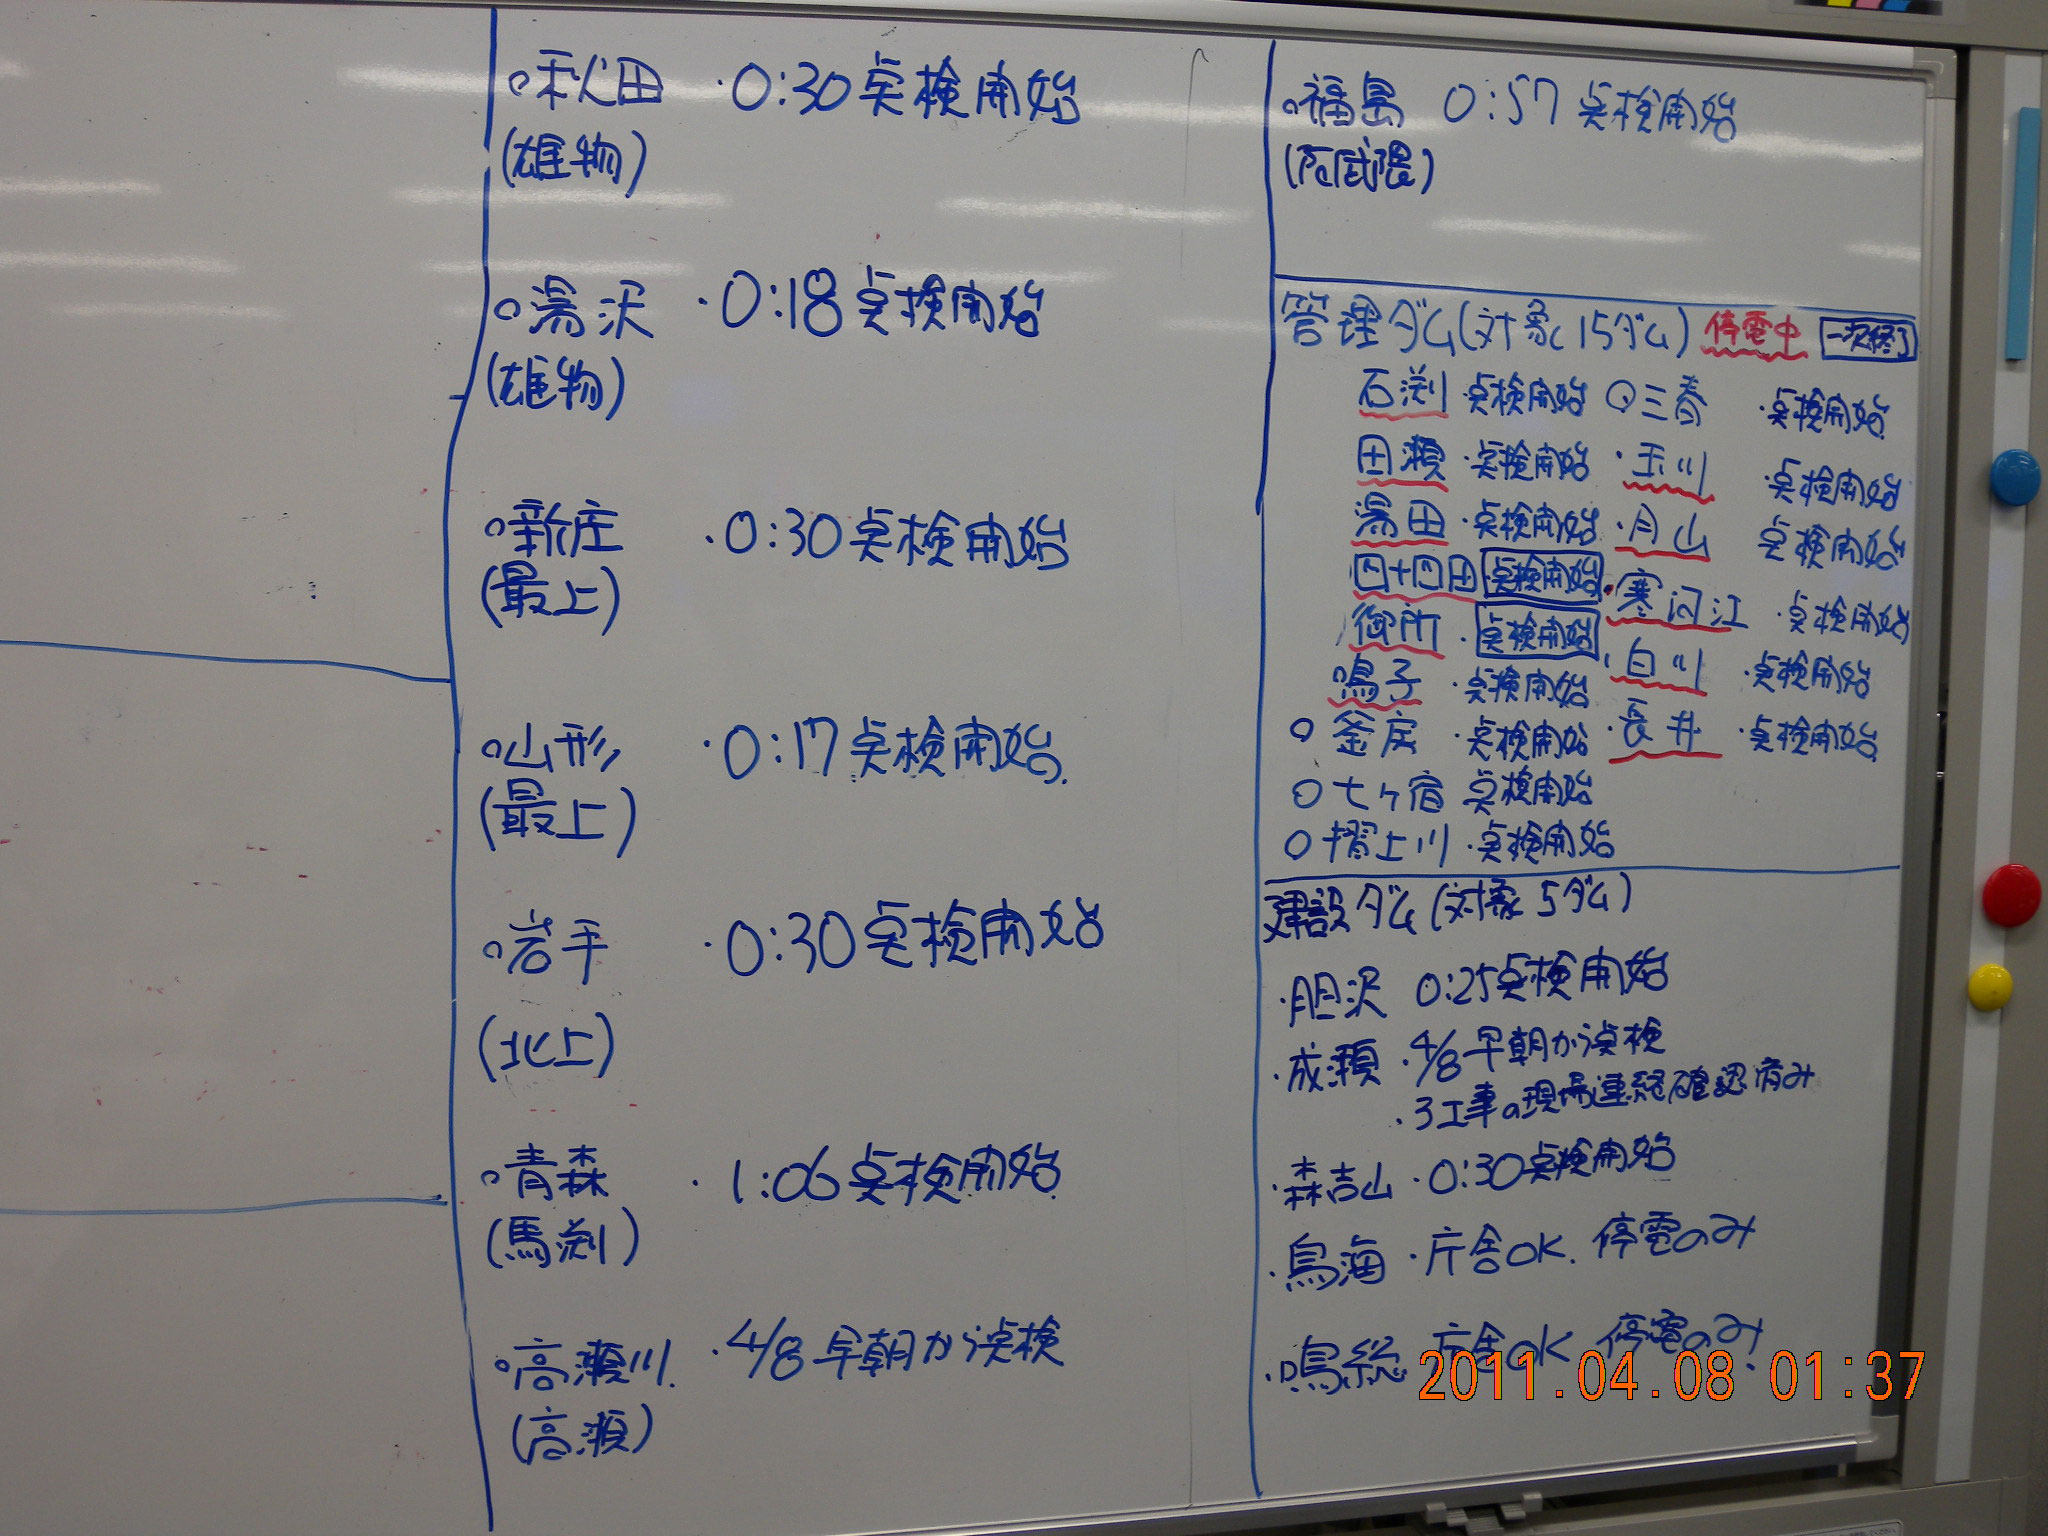 ○秋田 ・0:30点検開始
(雄物)
○湯沢 ・0:18点検開始
(雄物)
○新庄 ・0:30点検開始
(最上)
○山形 ・0:17点検開始
(最上)
○岩手 ・0:30点検開始
(北上)
○青森 ・1:06点検開始
(馬渕)
○高瀬川 ・4/8 早朝から点検
(高瀬)
○福島 0:57点検開始
(阿武隈)
管理ダム(対象15ダム) 停電中 一次終了
石渕・点検開始 ○三春 ・点検開始
田瀬・点検開始 ・玉川 ・点検開始
湯田・点検開始 ・月山 点検開始
四十四田 点検開始 ・寒河江 ・点検開始
御所・点検開始 ・白川 ・点検開始
鳴子・点検開始 ・長井 ・点検開始
○釜房・点検開始
○七ヶ宿 点検開始
○摺上川・点検開始
建設ダム(対象5ダム)
・胆沢 0:25点検開始
・成瀬・4/8早朝から点検
・3工事の現場連絡確認済み
・森吉山・0:30点検開始
・鳥海・庁舎OK. 停電のみ
・鳴総 庁舎OK 停電のみ!
2011.04.08 01:37